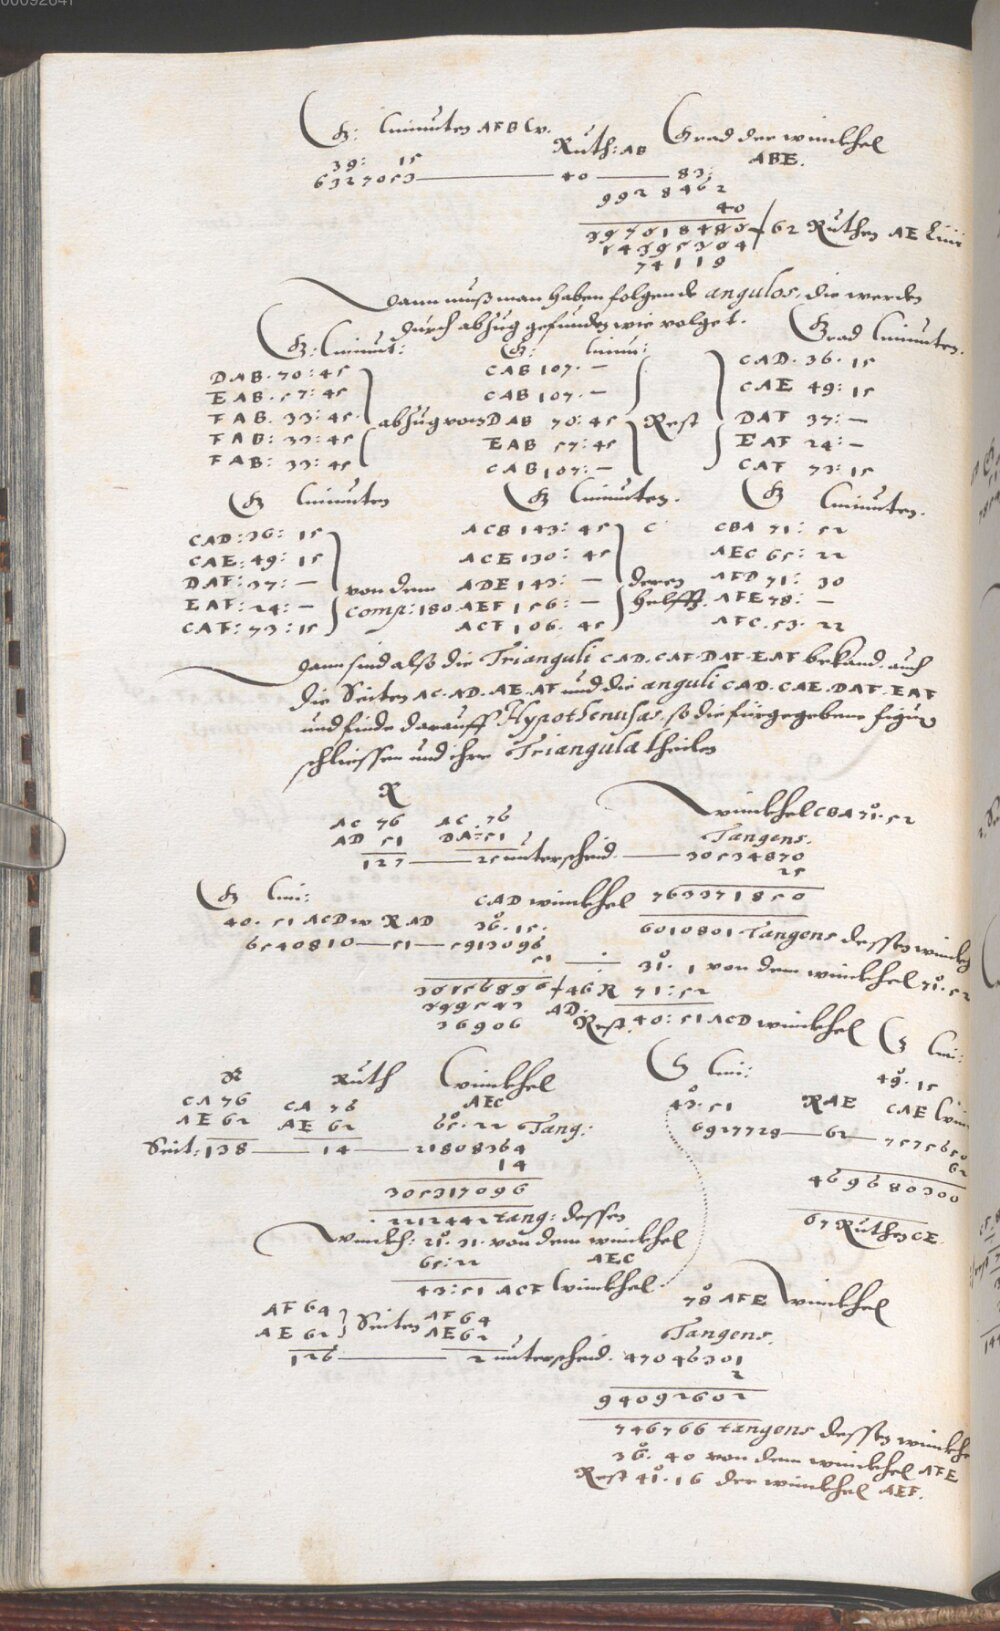 G: Minuten AFB W. Ruth: AB Grad der winckhel
39: 15 ABE.
6327053 — 40 — 83:
9928462
40
397018480 / 62 Ruthen AE Lini
14395304
74119
Dann muß man haben folgende angulos, die werden
durch abzug gefunden wie volget.
G: Minut: G: Minu: Grad Minuten.
DAB. 70: 45 CAB 107. — CAD. 36. 15
EAB. 57: 45 CAB 107. — CAE 49: 15
FAB. 33: 45 abzug von DAB 70: 45 Rest DAF 37: —
FAB: 33: 45 EAB 57: 45 EAF 24: —
FAB: 33: 45 CAB 107: — CAF 73: 15
G Minuten G Minuten. G Minuten.
CAD: 36: 15 ACB 143: 45 C CBA 71: 52
CAE: 49: 15 ACE 130: 45 AEC 65: 22
DAF: 37: — von dem ADE 143: — deren AFD 71: 30
EAF: 24: — comp: 180 AEF 156: — helfft. AFE 78: —
CAF: 73: 15 ACF 106. 45 AFC. 53. 22
Dann sind alß die Trianguli CAD. CAF. DAF. EAF bekand. auch
die Seiten AC. AD. AE. AF und die anguli CAD. CAE. DAF. EAF
und finde darauff Hypothenusas, so die fürgegebene figur
schliessen und ihre Triangula theilen
R
AC 76 AC. 76 winckhel CBA 71°. 52
AD 51 DA: 51 Tangens.
127 — 25 unterscheid. — 30534870
25
G Mi: CAD winckhel 763371850
40. 51 ACD w R AD 36°. 15. 6010801 Tangens dessen winckh
6540810 — 51 — 5913096
51 — 31°. 1 von dem winckhel 71°. 52
301568896 / 46 R 71: 52
399543 AD.
36906 Rest. 40: 51 ACD winckhel G Mi:
R Ruth Winckhel G Mi: 49°. 15
CA 76 CA 76 AEC 43°. 51 R AE CAE Win
AE 62 AE 62 65°. 22 Tang: 6927729 — 62 — 7575650
Seit: 138 — 14 — 21808364 62
14 469680300
305317096
2212442 tang: dessen 67 Ruthen CE
Winckh: 21°. 31. von dem winckhel
65: 22 AEC
43: 51 ACF Winckhel. 78° AFE Winckhel
AF 64 Seiten AF 64 Tangens.
AE 62 AE 62
126 — 2 unterscheid. 47046301
2
94092602
746766 tangens dessen winckhe
36°. 40 von dem winckhel AFE
Rest 41°. 16 der winckhel AEF.